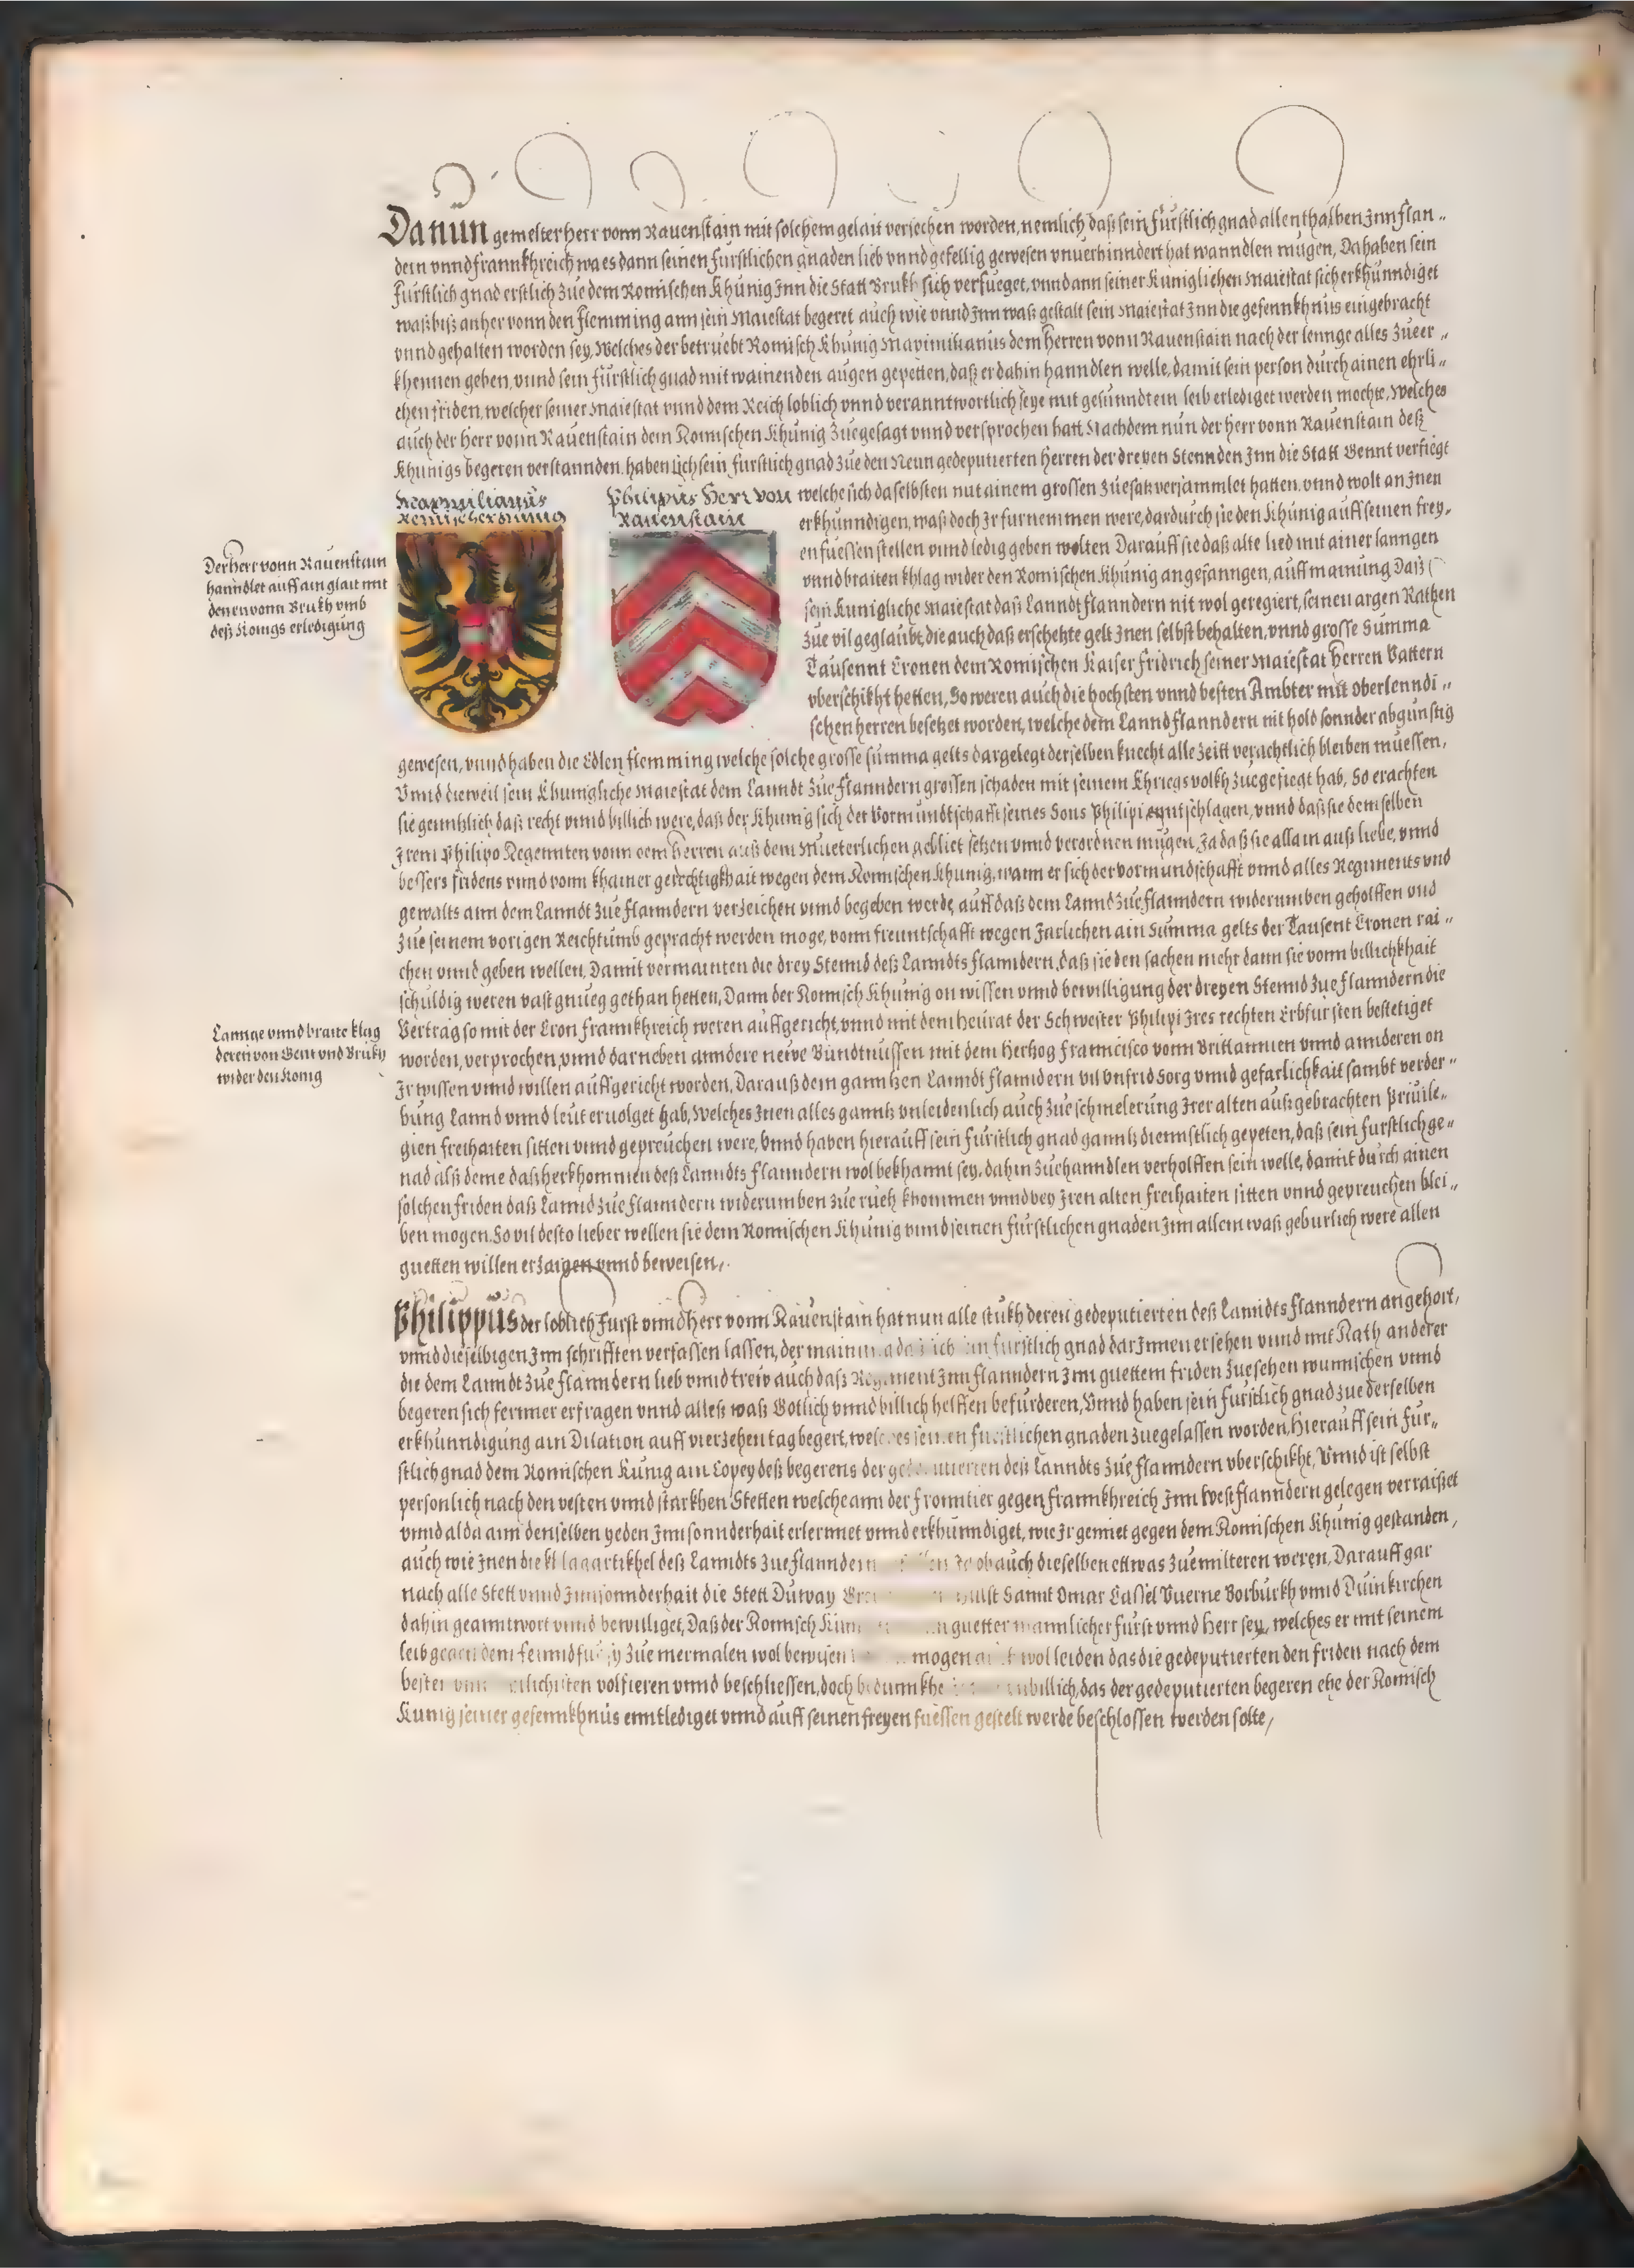 Da nun gemelter herr vonn Rauenstain mit solchem gelait versechen worden, nemlich daß sein fürstlich gnad allenthalben Jnn flan„
dern vnnd frannkhreich wa es dann seinen fürstlichen gnaden lieb vnnd gefellig gewesen vnuerhinndert hat wanndlen mügen, Da haben sein
fürstlich gnad erstlich zue dem Romischen Khünig Jnn die Statt Brukh sich verfueget, vnnd ann seiner Künigliehen Maiestat sich erkhünndiget
waß biß anher vonn den flemming ann sein Maiestat begeret auch wie vnnd Jnn waß gestalt sein Maiestat Jnn die gefennkhnüs eingebracht
vnnd gehalten worden sey, Welches der betruebt Romisch Khünig Maximilianus dem Herren vonn Rauenstain nach der lennge alles zueer„
khennen geben, vnnd sein fürstlich gnad mit wainenden augen gepetten, daß er dahin hanndlen welle, damit sein person durch ainen ehrli„
chen friden, welcher seiner Maiestat vnnd dem Reich loblich vnnd veranntwortlich seye mit gesünndtem leib erlediget werden mochte, Welches
auch der herr vonn Rauenstain dem Romischen Khünig zuegesagt vnnd versprochen hatt Nachdem nün der herr vonn Rauenstain deß
Khünigs begeren verstannden, haben sich sein fürstlich gnad zue den Neun gedeputierten herren der dreyen Stennden Jnn die Statt Gennt verfiegt
Maximilianus
Romischer Künnig
Philipus Herr von
Rauenstain
welche sich daselbsten mit ainem grossen zuesatz versammlet hatten, vnnd wolt an Jnen
erkhünndigen, waß doch Jr furnemmen were, dardurch sie den Khünig auff seinen frey„
en fuessen stellen vnnd ledig geben wolten Darauff sie daß alte lied mit ainer lanngen
vnnd braiten khlag wider den Romischen Khünig angefanngen, auff mainung Daß
sein Kunigliche Maiestat daß Lanndt flanndern nit wol geregiert, seinen argen Rathen
zue vil geglaubt, die auch daß erschetzte gelt Jnen selbst behalten, vnnd grosse Summa
Tausennt Cronen dem Romischen Kaiser fridrich seiner Maiestat herren Vattern
vberschikht hetten, So weren auch die hochsten vnnd besten Ämbter mit oberlenndi„
schen herren besetzet worden, welche dem Lannd flanndern nit hold sonnder abgunstig
Der herr vonn Rauenstain
hanndlet auff ain glait mit
denen vonn Brukh vmb
deß Konigs erledigung
gewesen, vnnd haben die Edlen flemming welche solche grosse summa gelts dargelegt derselben knecht alle zeitt verachtlich bleiben muessen,
Vnnd dieweil sein Khunigliche Maiestat dem Lanndt zue flanndern grossen schaden mit seinem Khriegs volkh zuegefiegt hab, So erachten
sie genntzlich daß recht vnnd billich were, daß der Khunig sich der Vormundtschafft seines Sons Philipi enntschlagen, vnnd daß sie demselben
Jrem Philipo Regennten vonn dem herren auß dem Mueterlichen gebliet setzen vnnd verordnen mügen, Ja daß sie allain auß liebe, vnnd
bessers fridens vnnd vonn khainer gerechtigkhait wegen dem Romischen Khunig, wann er sich der vormundschafft vnnd alles Regiments vnd
gewalts ann dem Lanndt zue flanndern verzeichen vnnd begeben werde, auff daß dem Lannd zue flanndern widerumben geholffen vnd
zue seinem vorigen Reichtumb gepracht werden moge, vonn freuntschafft wegen Jarlichen ain Summa gelts der Tausent Cronen rai„
chen vnnd geben wellen, Damit vermainten die drey Stennd deß Lanndts flanndern, daß sie den sachen mehr dann sie vonn billichkhait
schuldig weren vast gnueg gethan hetten, Dann der Romisch Khunig on wissen vnnd bewilligung der dreyen Stennd zue flanndern die
Vertrag so mit der Cron frannkhreich weren auffgericht, vnnd mit dem heurat der Schwester Philipi Jres rechten Erbfursten bestetiget
worden, verprochen, vnnd darneben anndere neüe Bündtnussen mit dem Hertzog Francisco vonn Brittannien vnnd annderen on
Jr wissen vnnd willen auffgericht worden, Darauß dem ganntzen Lanndt flanndern vil vnfrid sorg vnnd gefarlichkait sambt verder„
bung Lannd vnnd leüt eruolget hab, Welches Jnen alles ganntz vnleidenlich auch zue schmelerüng Jrer alten auß gebrachten Priuile„
gien freihaiten sitten vnnd gepreuchen were, Vnnd haben hierauff sein fürstlich gnad ganntz diennstlich gepeten, daß sein furstlich ge„
nad alß deme daß herkhommen deß Lanndts flanndern wol bekhannt sey, dahin zuehanndlen verholffen sein welle, damit durch ainen
solchen friden daß Lannd zue flanndern widerumben zue rueh khommen vnnd bey Jren alten freihaiten sitten vnnd gepreuchen blei„
ben mogen, So vil desto lieber wellen sie dem Romischen Khunig vnnd seinen fürstlichen gnaden Jnn allem waß geburlich were allen
guetten willen erzaigen vnnd beweisen,
Lannge vnnd braite klag
deren von Gent vnd Brukh
wider den Konig
Philippüs der loblich Fürst vnnd Herr vonn Rauenstain hat nun alle stukh deren gedeputierten deß Lanndts flanndern angehört,
vnnd dieselbigen Jnn schrifften verfassen lassen, der mainung das sich sein fürstlich gnad darJnnen ersehen vnnd mit Rath anderer
die dem Lanndt zue flanndern lieb vnnd trew auch daß Regiment Jnn flanndern Jnn guettem friden zuesehen wunnschen vnnd
begeren sich fernner erfragen vnnd alleß waß Gotlich vnnd billich helffen befurderen, Vnnd haben sein fürstlich gnad zue derselben
erkhünndigüng ain Dilation auff vierzehen tag begert, welches seinen fürstlichen gnaden zuegelassen worden, Hierauff sein für„
stlich gnad dem Romischen Künig ain Copey deß begerens der gedeputierten deß Lanndts zue flanndern vberschikht, Vnnd ist selbst
personlich nach den vesten vnnd starkhen Stetten welche ann der fronntier gegen frannkhreich Jnn West flanndern gelegen verraißet
vnnd alda ann denselben yeden Jnnsonnderhait erlernnet vnnd erkhünndiget, wie Jr gemiet gegen dem Romischen Khünig gestannden,
auch wie Jnen die khlagartikhel deß Lanndts zue flanndern ob auch dieselben ettwas zuemilteren weren, Darauff gar
nach alle Stett vnnd Jnnsonnderhait die Stett Duway Sannt Omar Cassel Vuerne Borburkh vnnd Duinkirchen
dahin geanntwort vnnd bewilliget, Daß der Romisch Künig guetter mannlicher fürst vnnd herr sey, welches er mit seinem
leib gegen dem feinnd zue mermalen wol bewisen mogen wol leiden das die gedeputierten den friden nach dem
besten volfieren vnnd beschliessen, doch vnbillich, das der gedeputierten begeren ehe der Romisch
Kunig seiner gefennkhnüs enntlediget vnnd auff seinen freyen fuessen gestelt werde beschlossen werden solte,